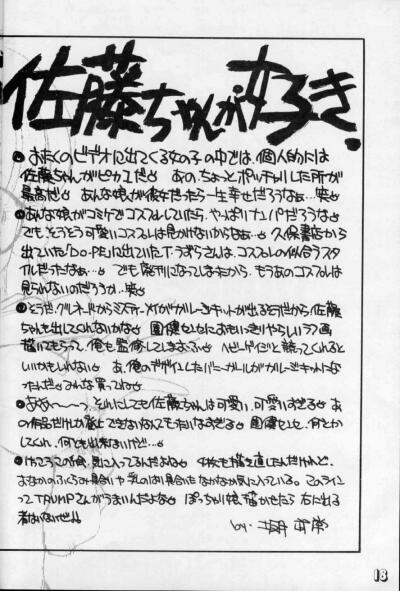 佐藤ちゃんが好き.
おたくのビデオに出てくる女の子の中では、個人的には
佐藤ちゃんがピカ一だ あの、ちょっとポッチャリした所が
最高だ あんな娘が彼女だったら一生幸せだろうなぁ…笑
あんな娘がコミケでコスプレしていたら、やっぱりナンパだろうな
でもそうそう可愛いコスプレは見かけないからなぁ… 久保書店から
出ていた「DO・PE」に出ていたT・うずらさんは、コスプレの似合うスタ
イルだったなぁ… でも廃刊になってしまったから、もうあのコスプレは
見られないのだろうか…笑
そうだ、グレネードからミスティ・メイがガレージキットが出るそうだから佐藤
ちゃんも出してくれないかな 園田健一センセにおもいっきりやらしいラフ画
描いてもらって、俺も監修して
いいかもしれない あ、俺のデザインしたバニーガールがガレージキットにな
ったんだ みんな買ってね
ああ〜〜っ、それにしても佐藤ちゃんは可愛い、可愛いすぎる あ
の作品だけしか登場できないなんてもったいなさすぎる 園田健一センセ、何とか
してくれ、何とも出来ないけど…
けっこうこの絵、気に入ってるんだよね 4枚も描き直したんだけれど、
おなかのふくらみ具合いや乳のはり具合いもなかなか気に入っている。このライン
ってTRUMPさんがうまいんだよな ぽっちゃり娘、描かせたら右に出る
者はないぜ!!
by.
18